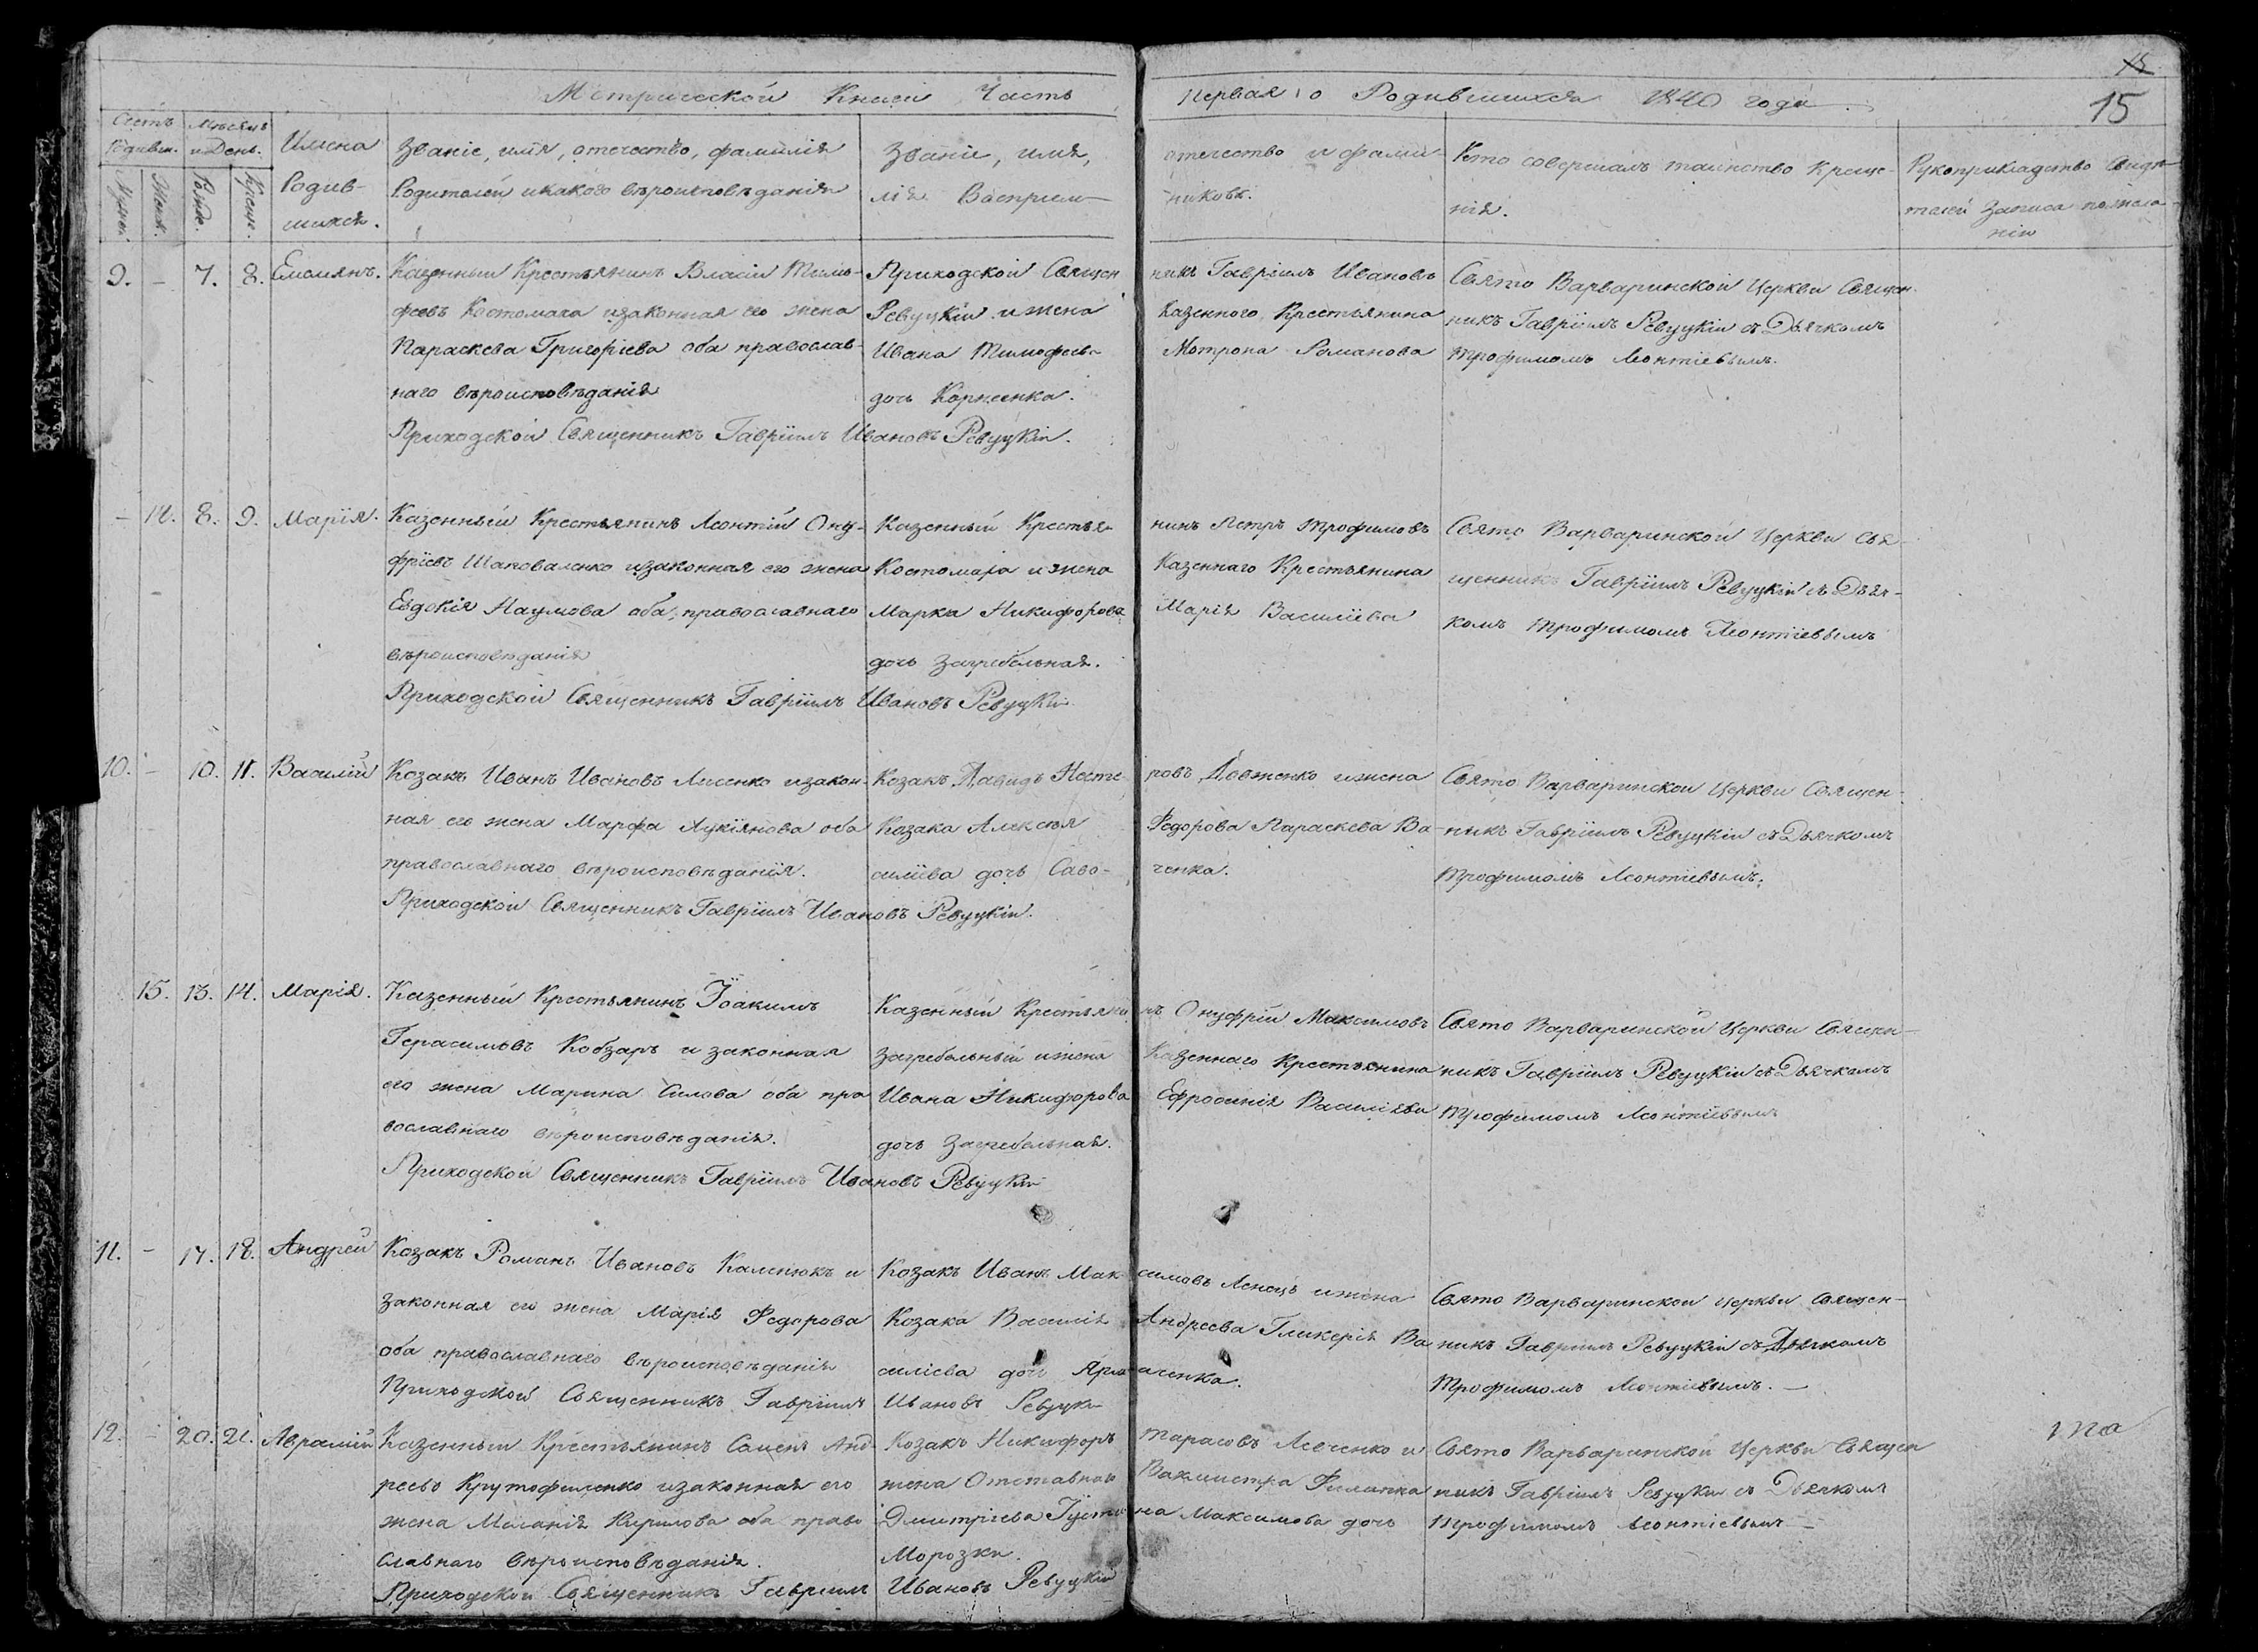 15
Метрической Книги Часть Первая о Родившихся 1840 года
15
Счетъ Родивш.
Мужеск.
Женск.
Мѣсяцъ и День.
Рожд.
Крещ.
Имена
Родив-
шихся.
Званіе, имя, отечество, фамилія
Родителей и какого вѣроисповѣданія
Званіе, имя, отечество и фами-
лія Воспріем- никовъ.
Кто совершалъ таинство Креще-
нія.
Рукоприкладство Свидѣ-
телей записи по жела-
нію
9. – 7. 8. Емелиянъ.
Казенный Крестьянинъ Власій Тимо-
феевъ Костомаха и законная его жена
Параскева Григоріева оба православ-
наго вѣроисповѣданія
Приходской Священникъ Гавріилъ Ивановъ Ревуцкій.
Приходской Священ никъ Гавріилъ Ивановъ
Ревуцкій и жена Казенного Крестьянина
Ивана Тимофеева Мотрона Романова
дочь Корнеенка.
Свято Варваринской Церкви Священ-
никъ Гавріилъ Ревуцкій съ Дьячкомъ
Трофимомъ Леонтіевымъ.
– 14. 8. 9. Марія.
Казенный Крестьянинъ Леонтій Ону-
фріевъ Шаповаленко и законная его жена
Евдокія Наумова оба православнаго
вѣроисповѣданія
Приходской Священникъ Гавріилъ Ивановъ Ревуцкій
Казенный Крестья- нинъ Петръ Трофимовъ
Костомаха и жена Казеннаго Крестьянина
Марка Никифорова Марія Василіева
дочь Загребельная.
Свято Варваринской Церкви Свя-
щенникъ Гавріилъ Ревуцкій съ Дьяч-
комъ Трофимомъ Леонтіевымъ
10. – 10. 11. Василій
Козакъ Иванъ Ивановъ Лисенко и закон-
ная его жена Марфа Лукіянова оба
православнаго вѣроисповѣданія.
Приходской Священникъ Гавріилъ Ивановъ Ревуцкій.
Козакъ Давидъ Несте- ровъ Довженко и жена
Козака Алексѣя Федорова Параскева Ва-
силіева дочь Саво- ченка.
Свято Варваринской Церкви Священ-
никъ Гавріилъ Ревуцкій съ Дьячкомъ
Трофимомъ Леонтіевымъ.
15. 13. 14. Марія.
Казенный Крестьянинъ Іоакимъ
Герасимовъ Кобзарь и законная
его жена Марина Силова оба пра
вославнаго вѣроисповѣданія.
Приходской Священникъ Гавріилъ Ивановъ Ревуцкій
Казенный Крестьяни нъ Онуфрій Максимовъ
Загребельный и жена Казеннаго Крестьянина
Ивана Никифорова Ефросинія Василіева
дочь Загребельная.
Свято Варваринской Церкви Священ-
никъ Гавріилъ Ревуцкій съ Дьячкомъ
Трофимомъ Леонтіевымъ
11. – 17. 18. Андрей
Козакъ Романъ Ивановъ Каленюкъ и
законная его жена Марія Федорова
оба православнаго вѣроисповѣданія
Приходской Священникъ Гавріилъ Ивановъ Ревуцкій
Козакъ Иванъ Мак симовъ и жена
Козака Василія Андреева Гликерія Ва
силіева дочь
Свято Варваринской Церкви Священ-
никъ Гавріилъ Ревуцкій съ Дьячкомъ
Трофимомъ Леонтіевымъ. –
12. – 20. 21. Аврамій
Казенный Крестьянинъ Сименъ Анд-
реевъ Крутофиленко и законная его
жена Меланія Кирилова оба право
славнаго вѣроисповѣданія.
Приходской Священникъ Гавріилъ Ивановъ Ревуцкій
Козакъ Никифоръ Тарасовъ и
жена Отставнаго Вахмистра Филиппа
Дмитріева Іусти на Максимова дочь
Морозки.
Свято Варваринской Церкви Священ
никъ Гавріилъ Ревуцкій съ Дьячкомъ
Трофимомъ Леонтіевымъ –